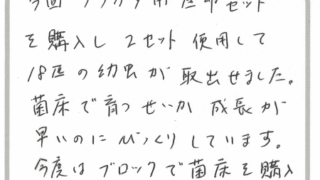 今回 クワガタ用 産卵セット
を購入し 2セット 使用して
18匹の幼虫が 取出せました。
菌床で育つせいか 成長が
早いのにびっくりしています。
今度は ブロックで菌床を購入